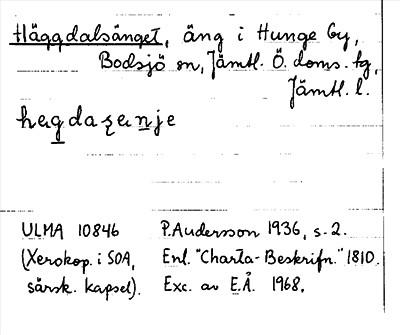 Häggdalsänget, äng i Hunge by,
Bodsjö sn, Jämtl. Ö. doms. tg,
Jämtl. l.
hägdaʂänje
ULMA 10846 P.Andersson 1936, s. 2.
(Xerokop. i SOA, Enl. "Charta-Beskrifn." 1810.
särsk. kapsel). Exc. av E.Å. 1968.